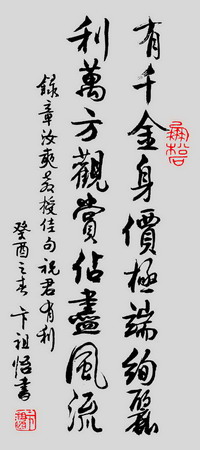 有千金身價極端絢麗
利萬方觀賞佔盡風流
錄章汝奭教授佳句祝君有利
癸酉之春卞祖怡書